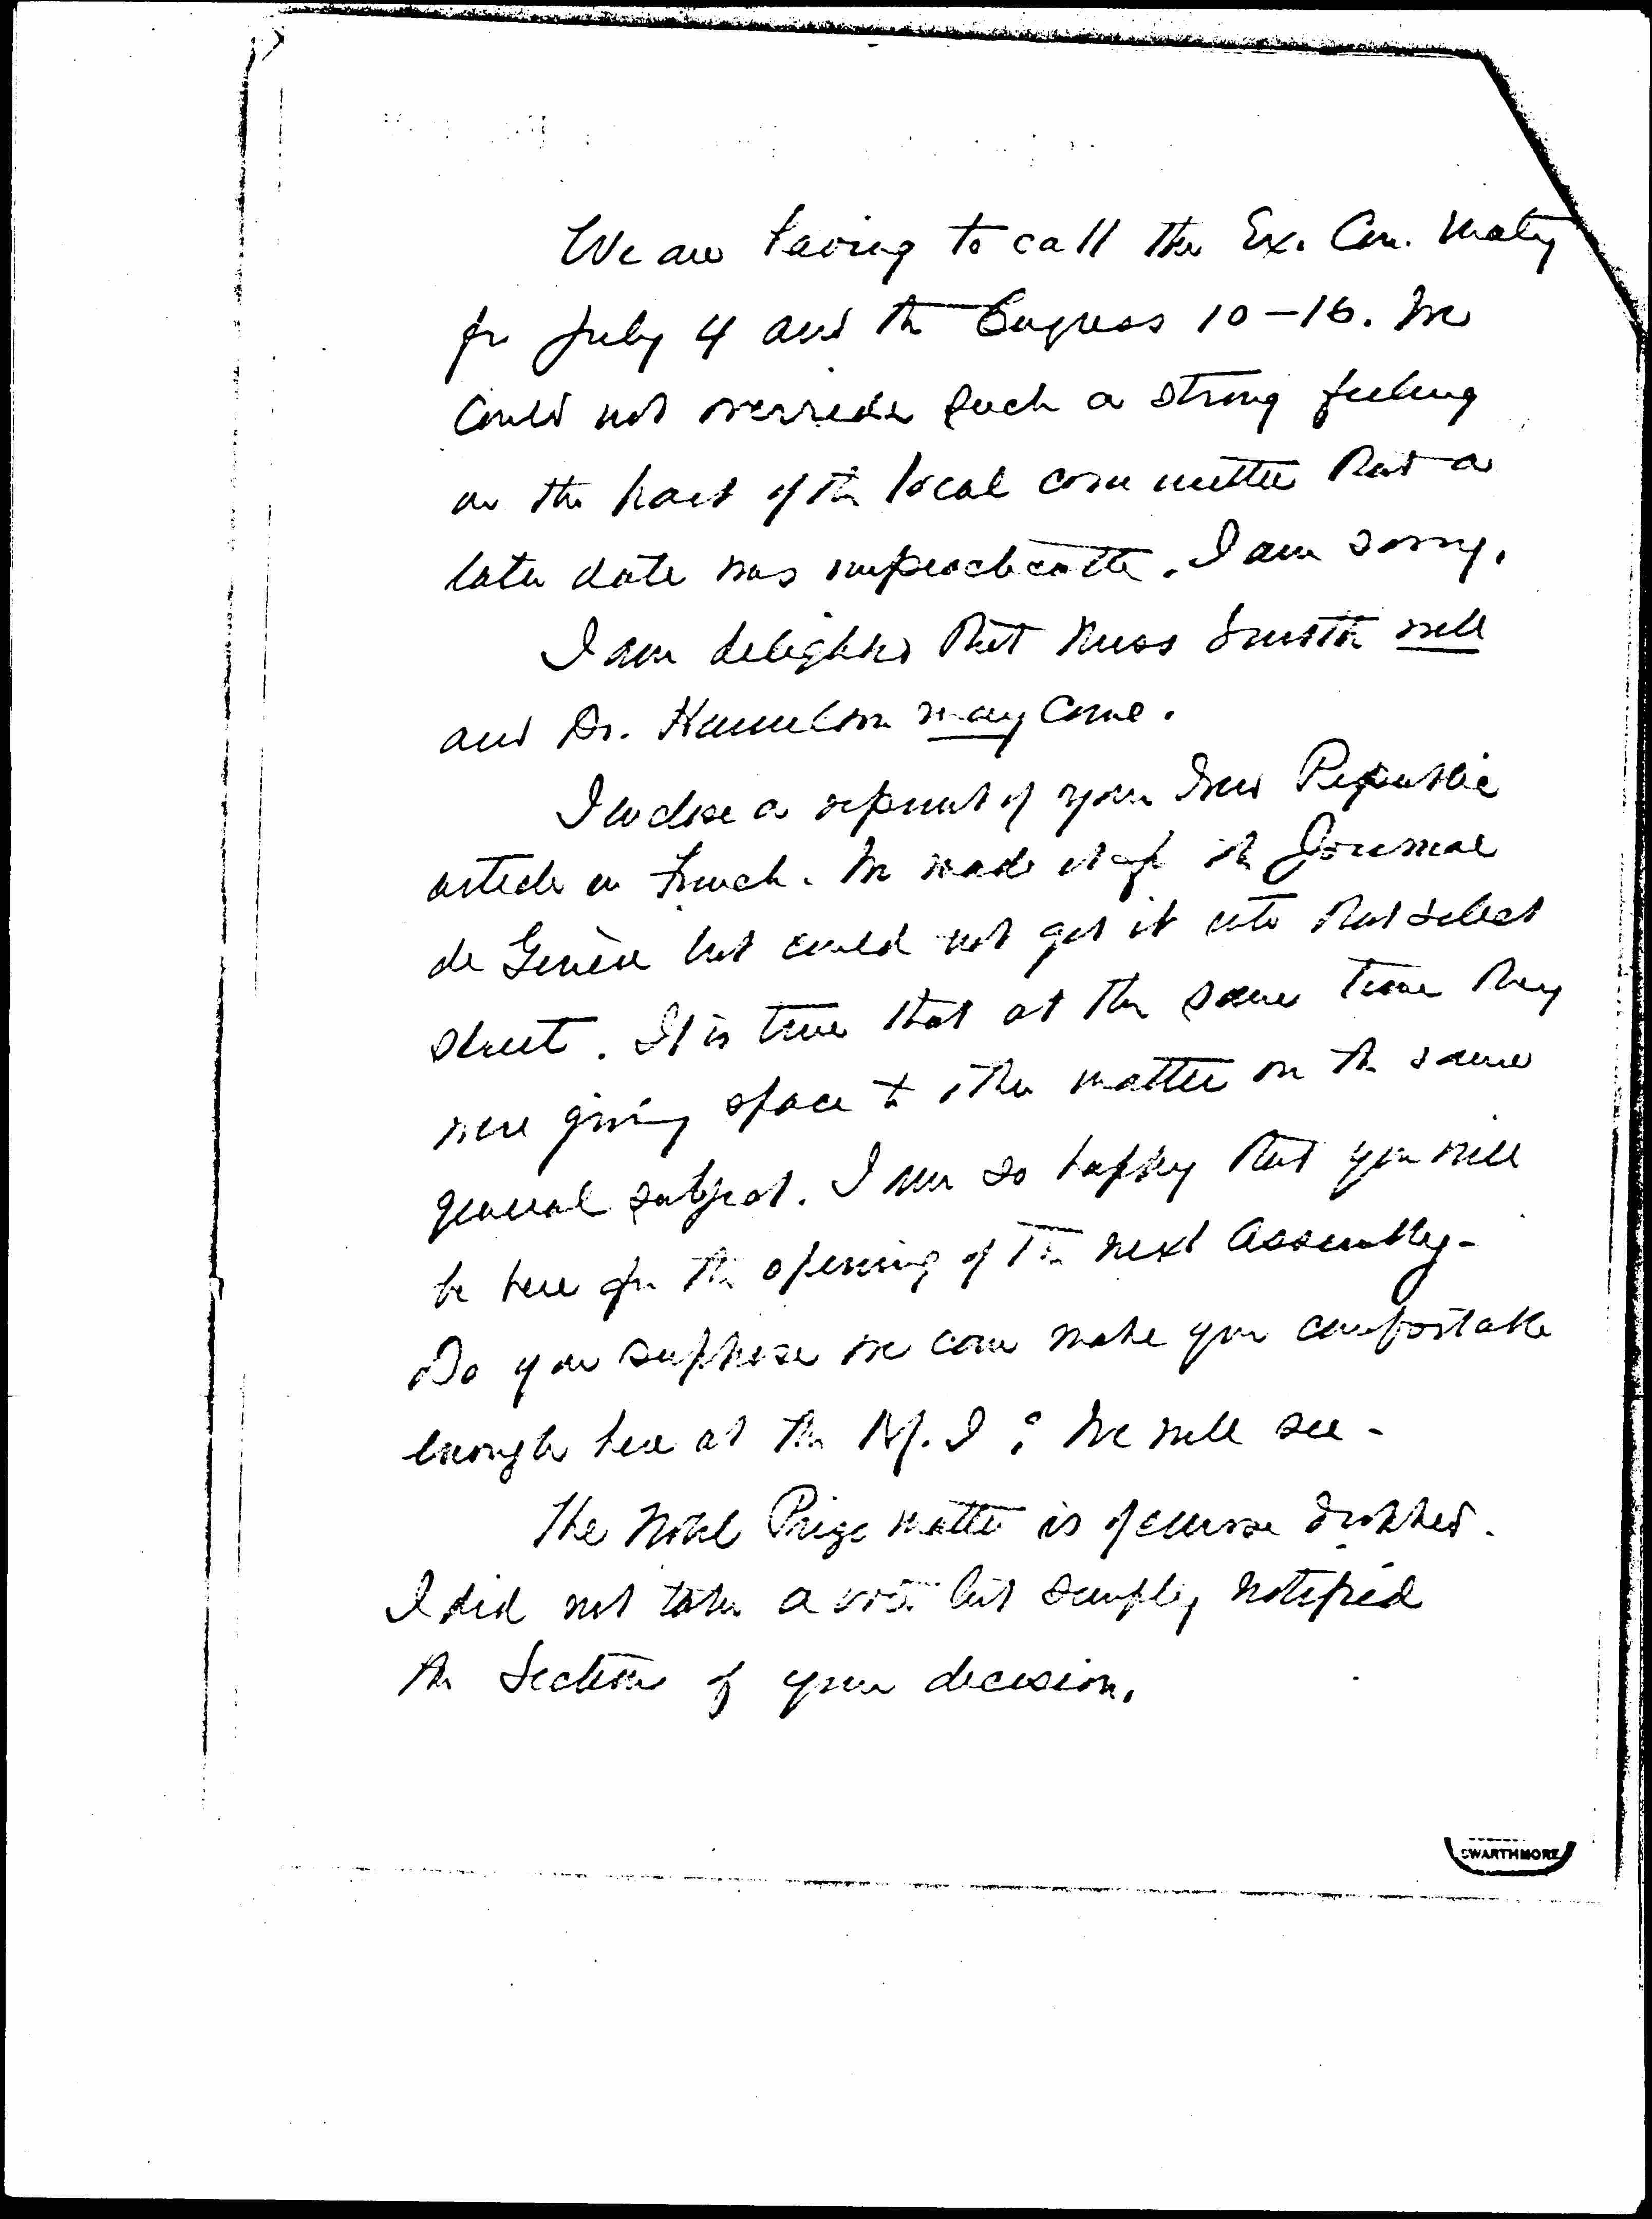 We are having to call the Ex. Com. Meeting
for July 4 and the Congress 10-16. We
could not override such a strong feeling
on the part of the local committee that a
later date was impracticable. I am sorry.
I am delighted that Miss Smith will
and Dr. Hamilton may come.
I enclose a reprint of your New Republic
article in French. We made it up in the Journal
de Genève but could not get it into that select
sheet. It is true that at the same time they
were giving space to other matter on the same
general subject. I am so happy that you will
be here for the opening of the next Assembly-
Do you suppose we can make you comfortable
enough here at the M.I? We will see-
The Nobel Prize matter is of course dropped.
I did not take a vote but simply notified
the Section of your decision.
SWARTHMORE